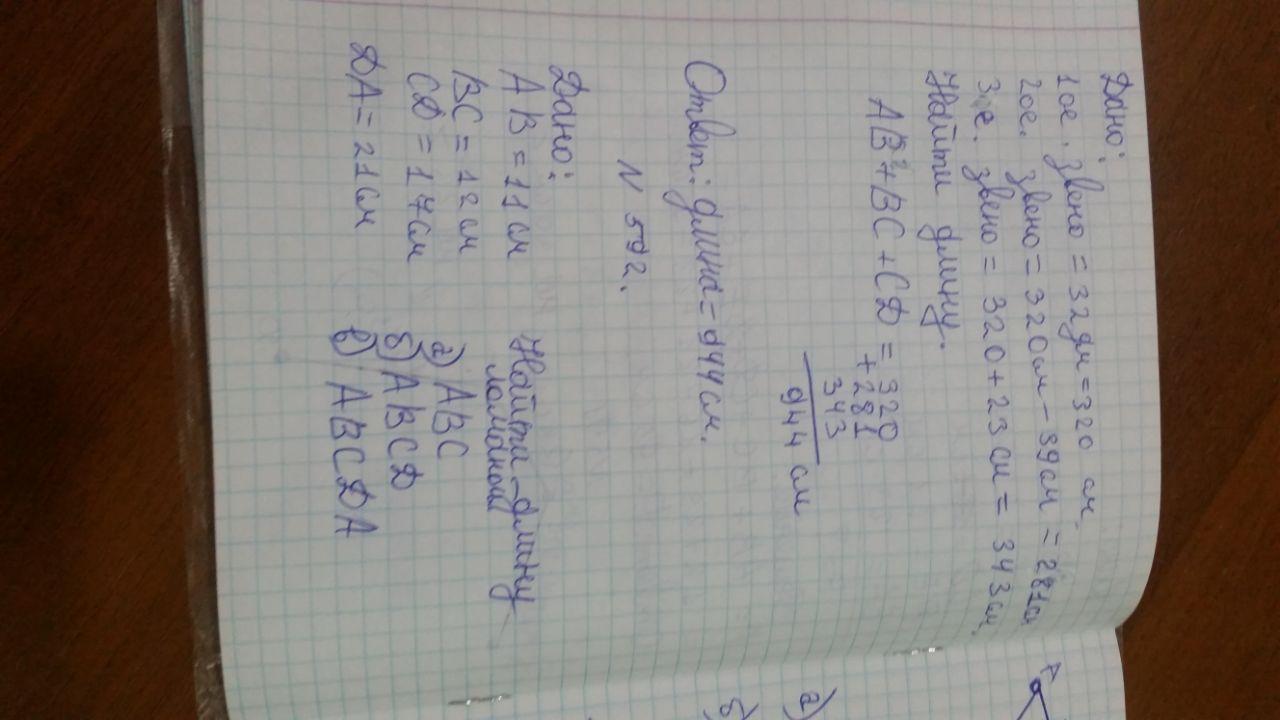 Дано:
1ое. звено = 32дм = 320 см.
2ое. звено = 320см - 39см = 281см
3ье. звено = 320 + 23 см = 343см.
Найти длину.
AB + BC + CD = 320
+ 281
343
944 см
Ответ: длина = 944 см.
N 592.
Дано:
AB = 11 см
BC = 12 см
CD = 17см
DA = 21см
Найти длину
ломаной
а) ABC
б) ABCD
в) ABCDA
A
а)
б)